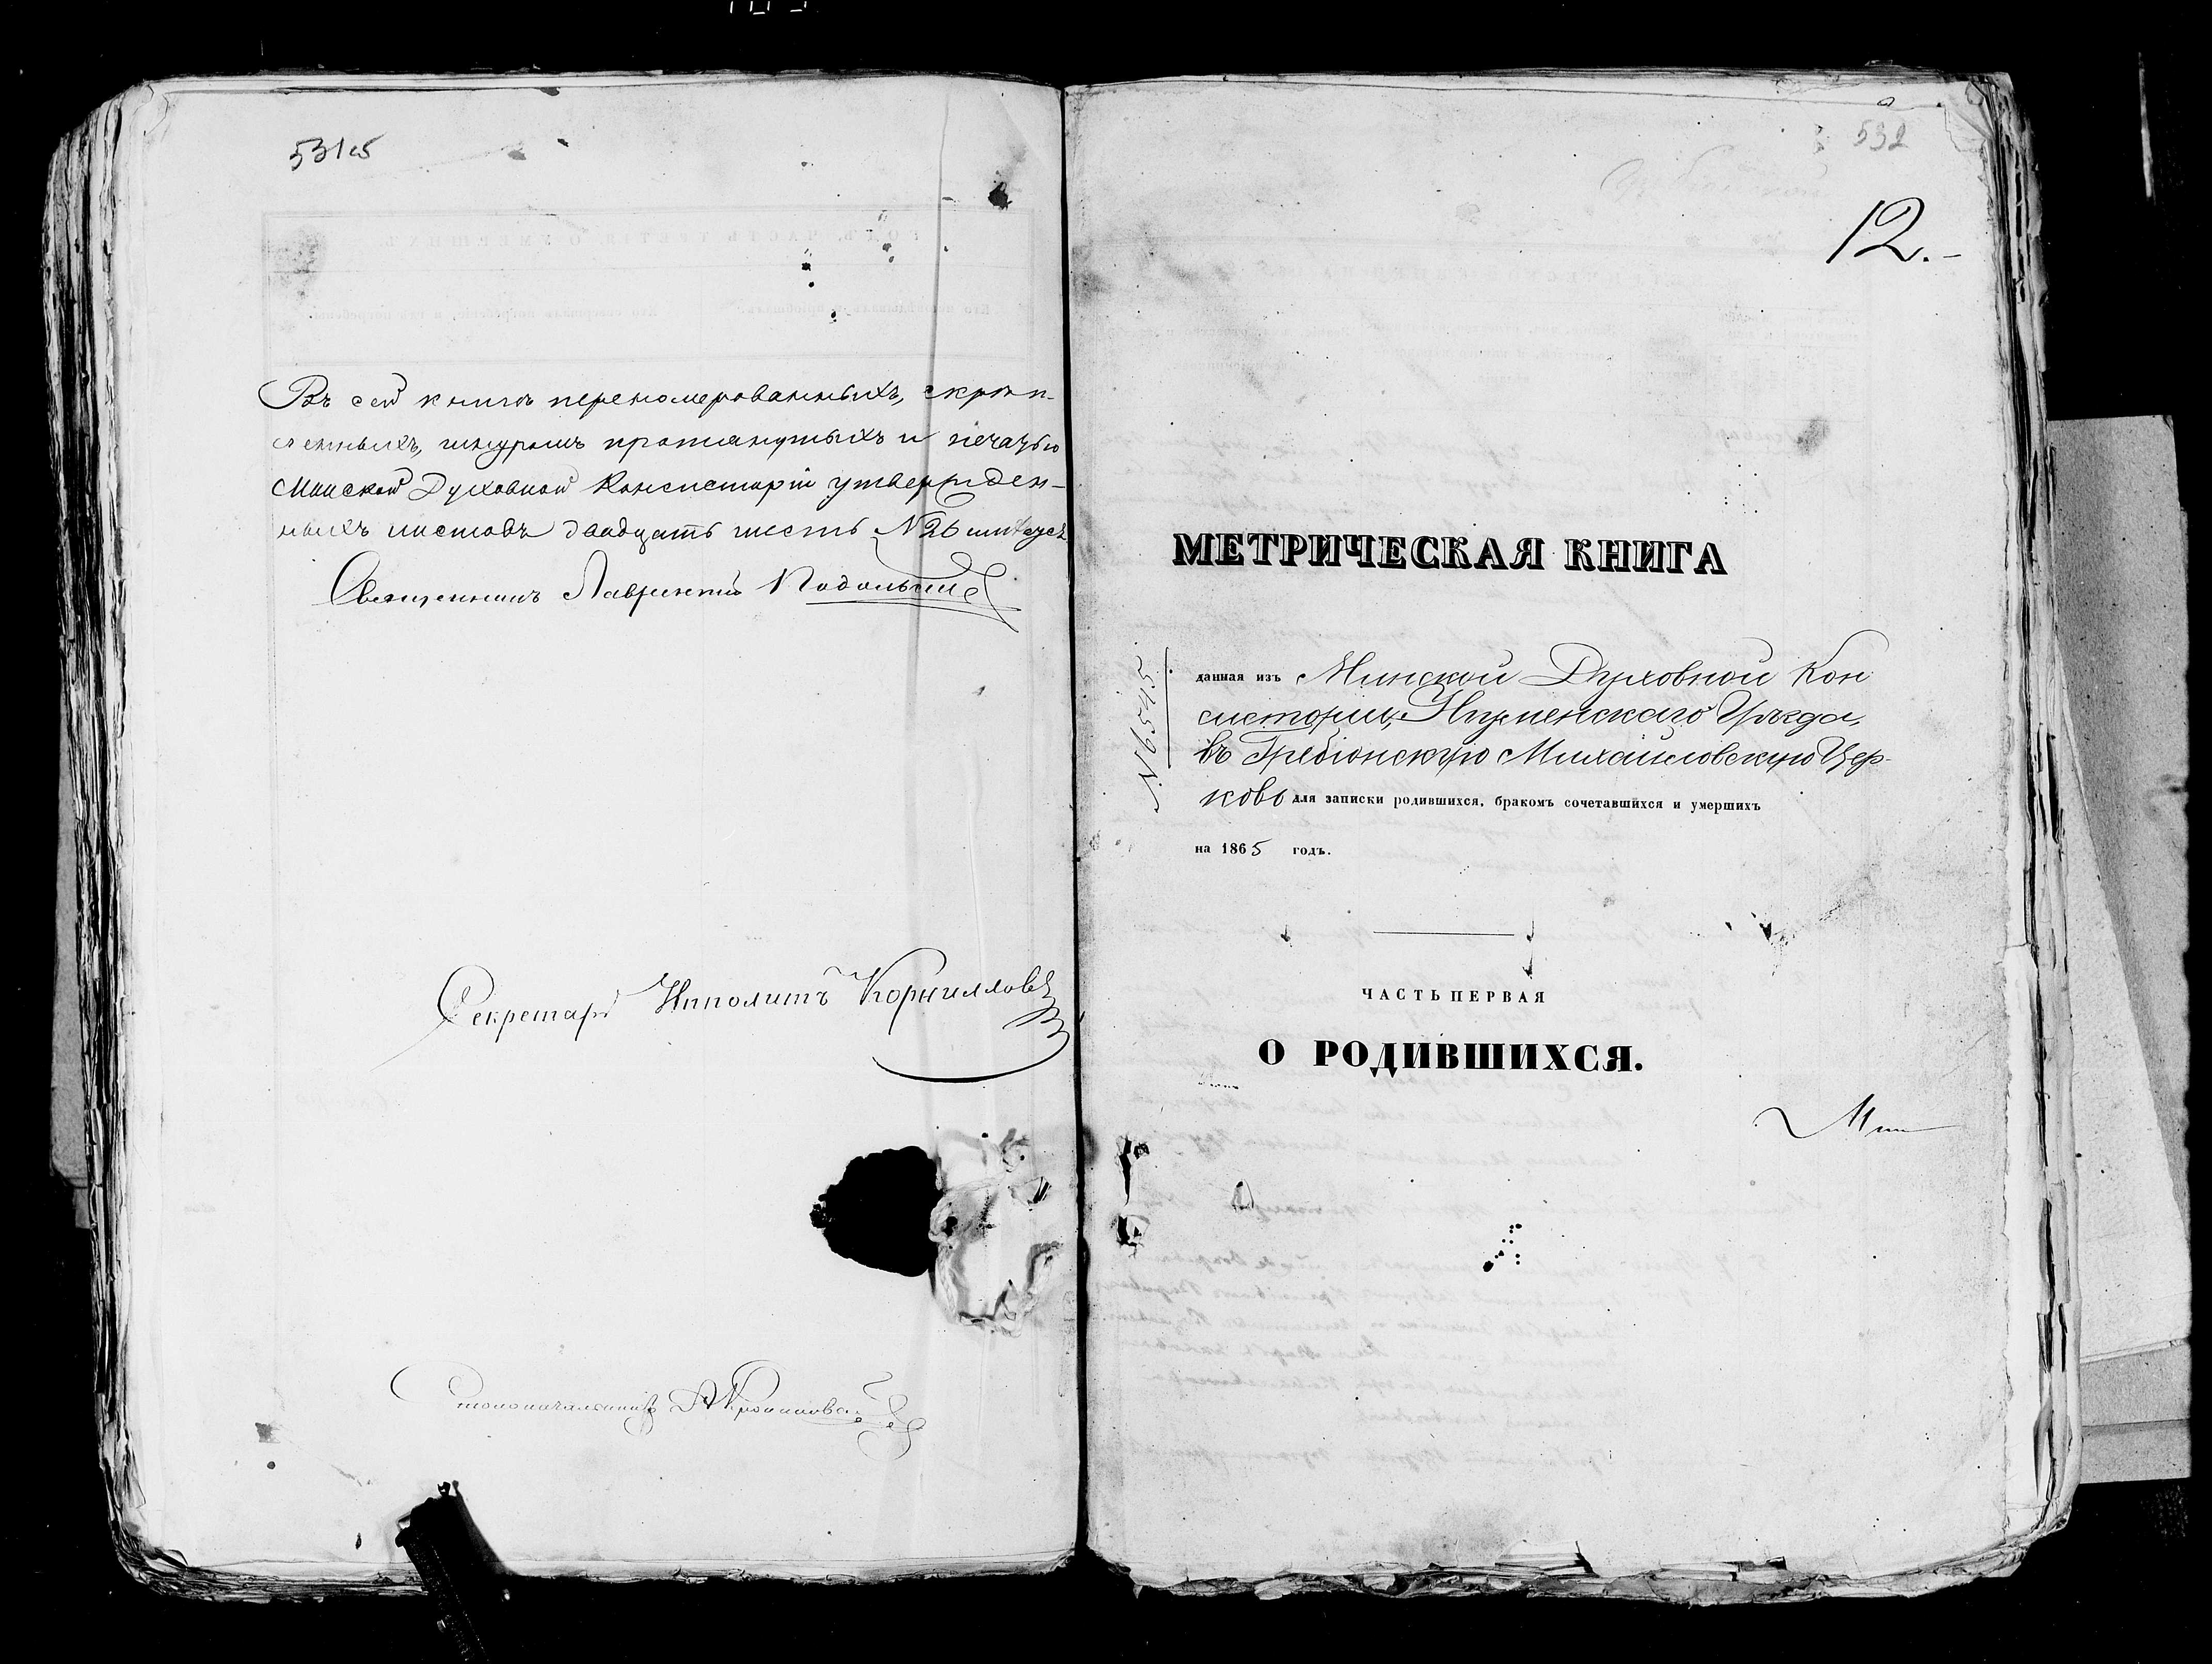 531об
Въ сей книгѣ перенумерованныхъ, скрѣп-
ленныхъ, шнуромъ протянутыхъ и печатью
Минской Духовной Консисторіи утвержден-
ныхъ листовъ двадцать шесть № 26
Священникъ Лаврентій
Секретарь Ипполитъ Корниловъ
Столоначальникъ
532
12.-
МЕТРИЧЕСКАЯ КНИГА
№ 6545
данная изъ Минской Духовной Кон
систоріи, Игуменскаго Уѣзда,
въ Гребіонскую Михайловскую Цер-
ковь для записки родившихся, бракомъ сочетавшихся и умершихъ
на 1865 годъ.
ЧАСТЬ ПЕРВАЯ
О РОДИВШИХСЯ.